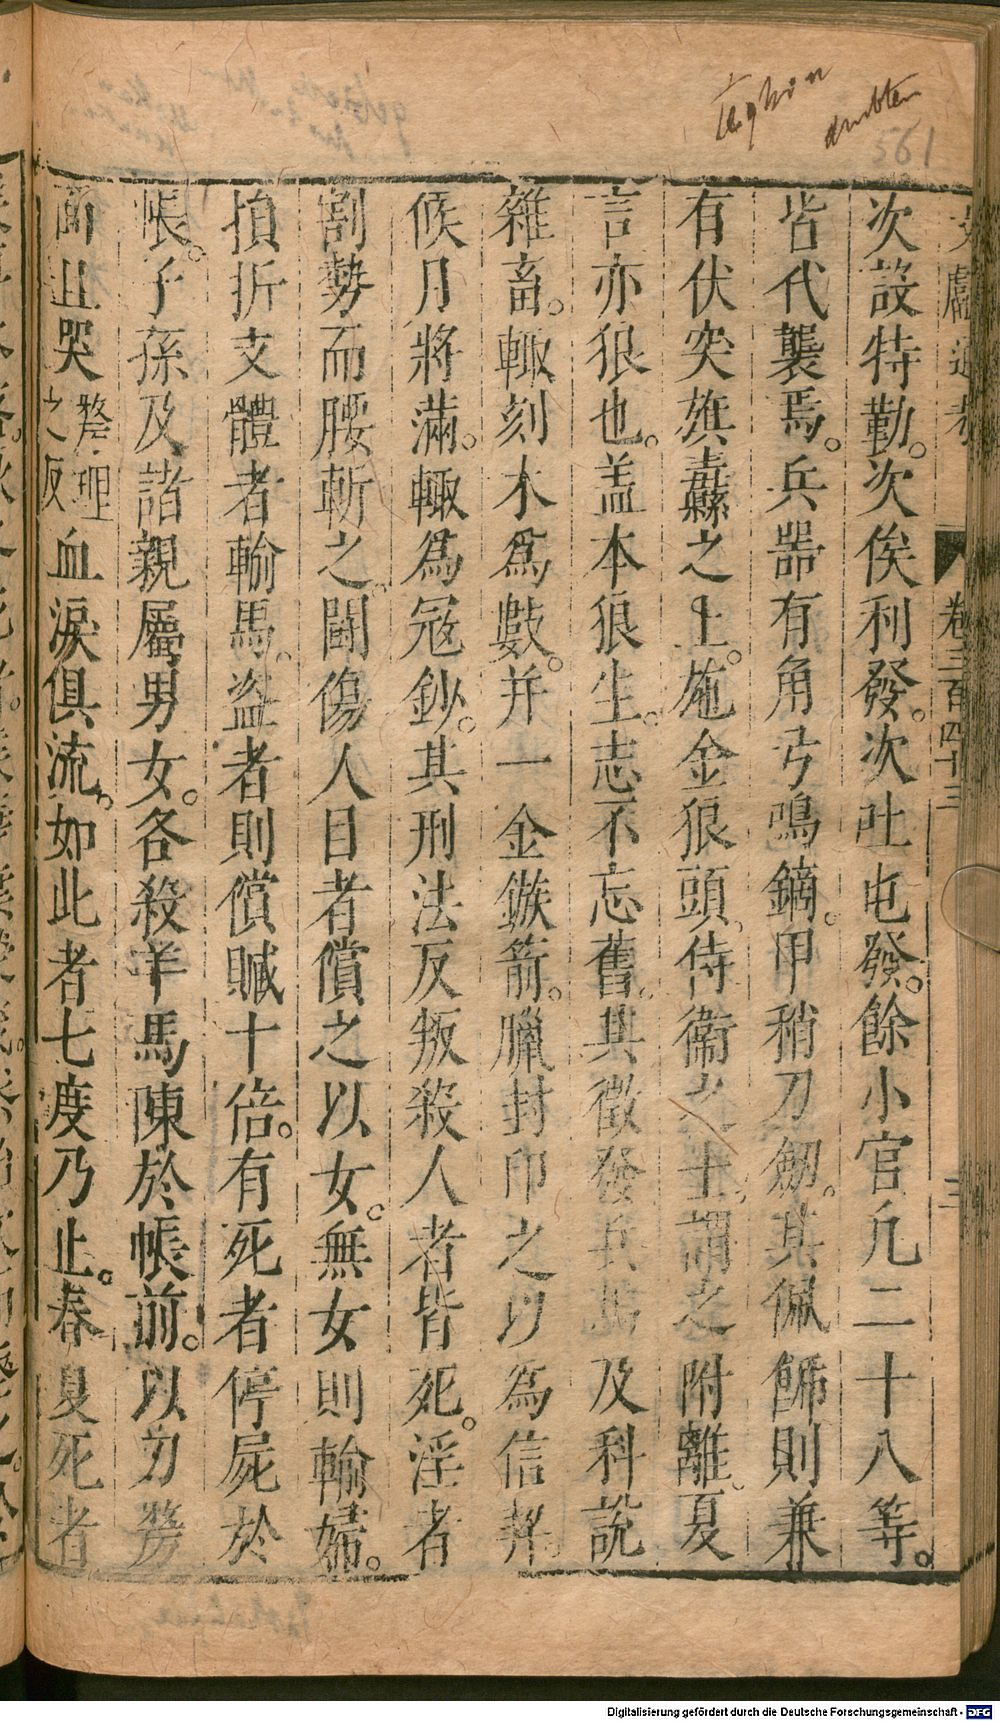 文獻通考 卷三百四十三 三
次設特勤。次俟利發。次吐屯發。餘小官凢二十八等。
皆代襲焉。兵噐有角弓鳴鏑。甲矟刀劒。其佩飾則兼
有伏突旗纛之上。施金狼頭。侍衞之士。謂之附離。夏
言亦狼也。盖本狼生。志不忘舊。其徵發兵馬及科訟
雜畜。輙刻木爲數。并一金鏃箭。臘封印之以爲信契。
候月將滿。輙爲冦鈔。其刑法反叛殺人者皆死。淫者
割勢而腰斬之。鬬傷人目者償之以女。無女則輸婦。
損折支體者輸馬。盗者則償贓十倍。有死者停屍於
帳。子孫及諸親屬男女。各殺羊馬陳於帳前。以刃剺
面且哭剺理之反血淚俱流。如此者七度乃止。春夏死者
561
Digitalisierung gefördert durch die Deutsche Forschungsgemeinschaft - DFG